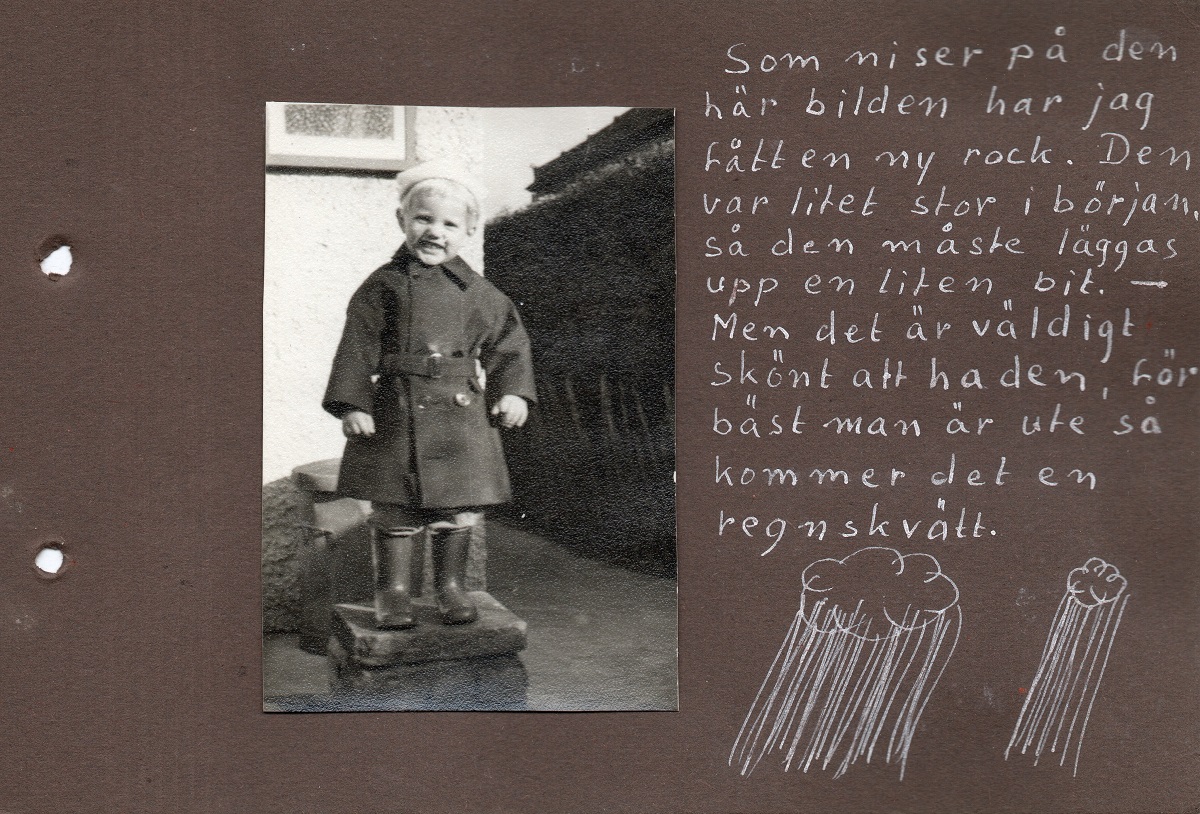 Som ni ser på den
här bilden har jag
fått en ny rock. Den
var litet stor i början,
så den måste läggas
upp en liten bit. —
Men det är väldigt
skönt att ha den, för
bäst man är ute så
kommer det en
regnskvätt.